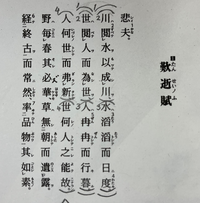 歎逝賦
たんせいノふ
悲夫
川閲水以成川水滔滔而日度
世閲人而為世人冉冉而行暮
人何世而弗新世何人之能故
野每春其必華草無朝而遺露
經終古而常然率品物其如素